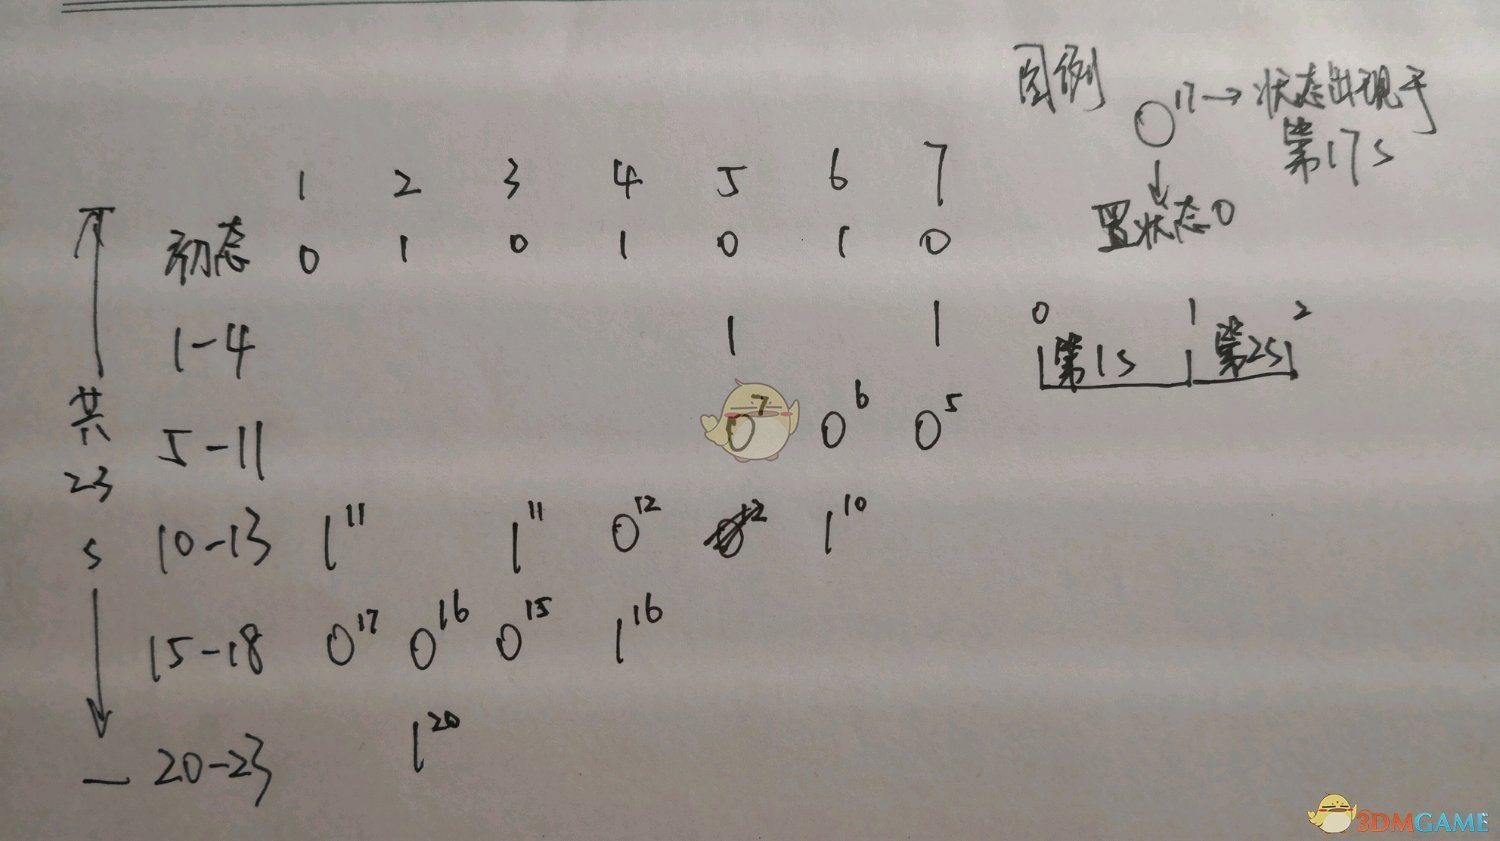 图例
0^17 → 状态出现于
第17s
↓
置状态0
0 1 2
第1s 第2s
1 2 3 4 5 6 7
初态 0 1 0 1 0 1 0
1-4 1 1
共
23
s
5-11 0^7 0^6 0^5
10-13 1^11 1^11 0^12 1^10
15-18 0^17 0^16 0^15 1^16
20-23 1^20
3DMGAME